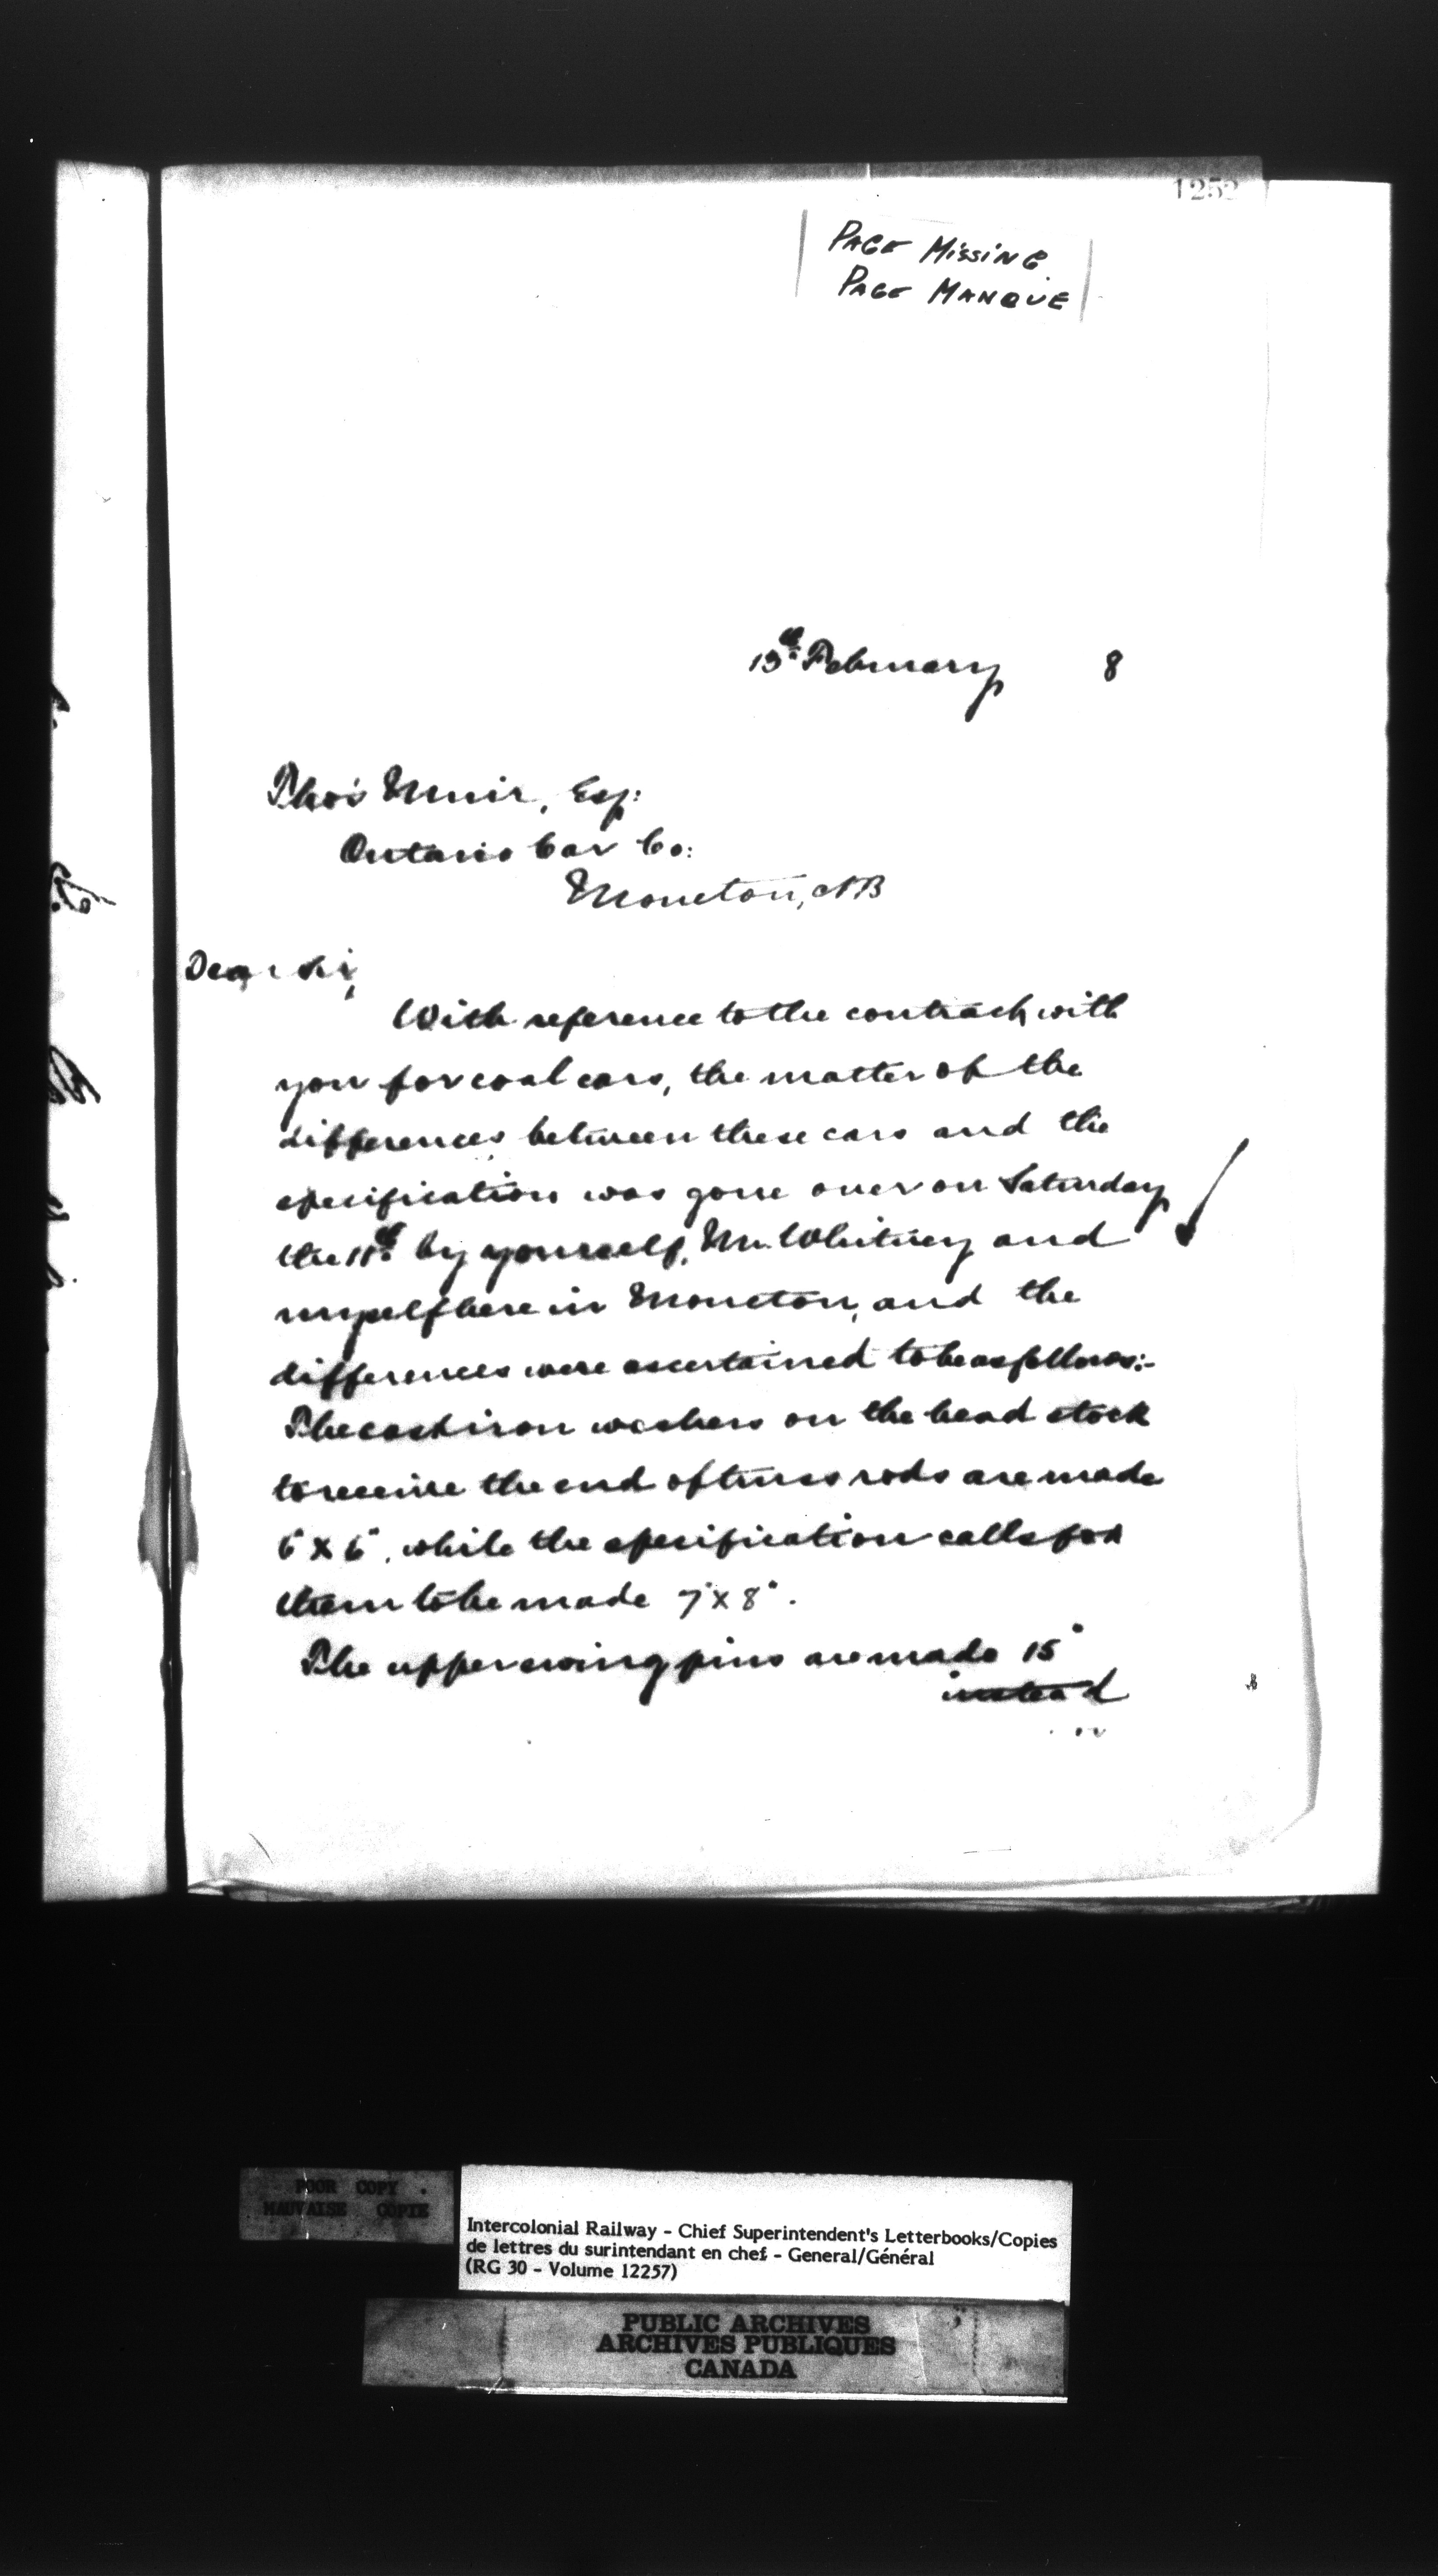 1252
PAGE MISSING
PAGE MANQUE
13th February 8
Thos Muir, Esq:
Ontario Car Co:
Moncton, NB
Dear Sir,
With reference to the contract with
you for coal cars, the matter of the
differences between these cars and the
specification was gone over on Saturday
the 11th by yourself, Mr. Whitney and
myself here in Moncton, and the
differences were ascertained to be as follows:-
The cast iron washers on the head stock
to receive the end of truss rods are made
6" x 6", while the specification calls for
them to be made 7" x 8".
The upper swing pins are made 15"
instead
POOR COPY
MAUVAISE COPIE
Intercolonial Railway - Chief Superintendent's Letterbooks/Copies
de lettres du surintendant en chef - General/Général
(RG 30 - Volume 12257)
PUBLIC ARCHIVES
ARCHIVES PUBLIQUES
CANADA